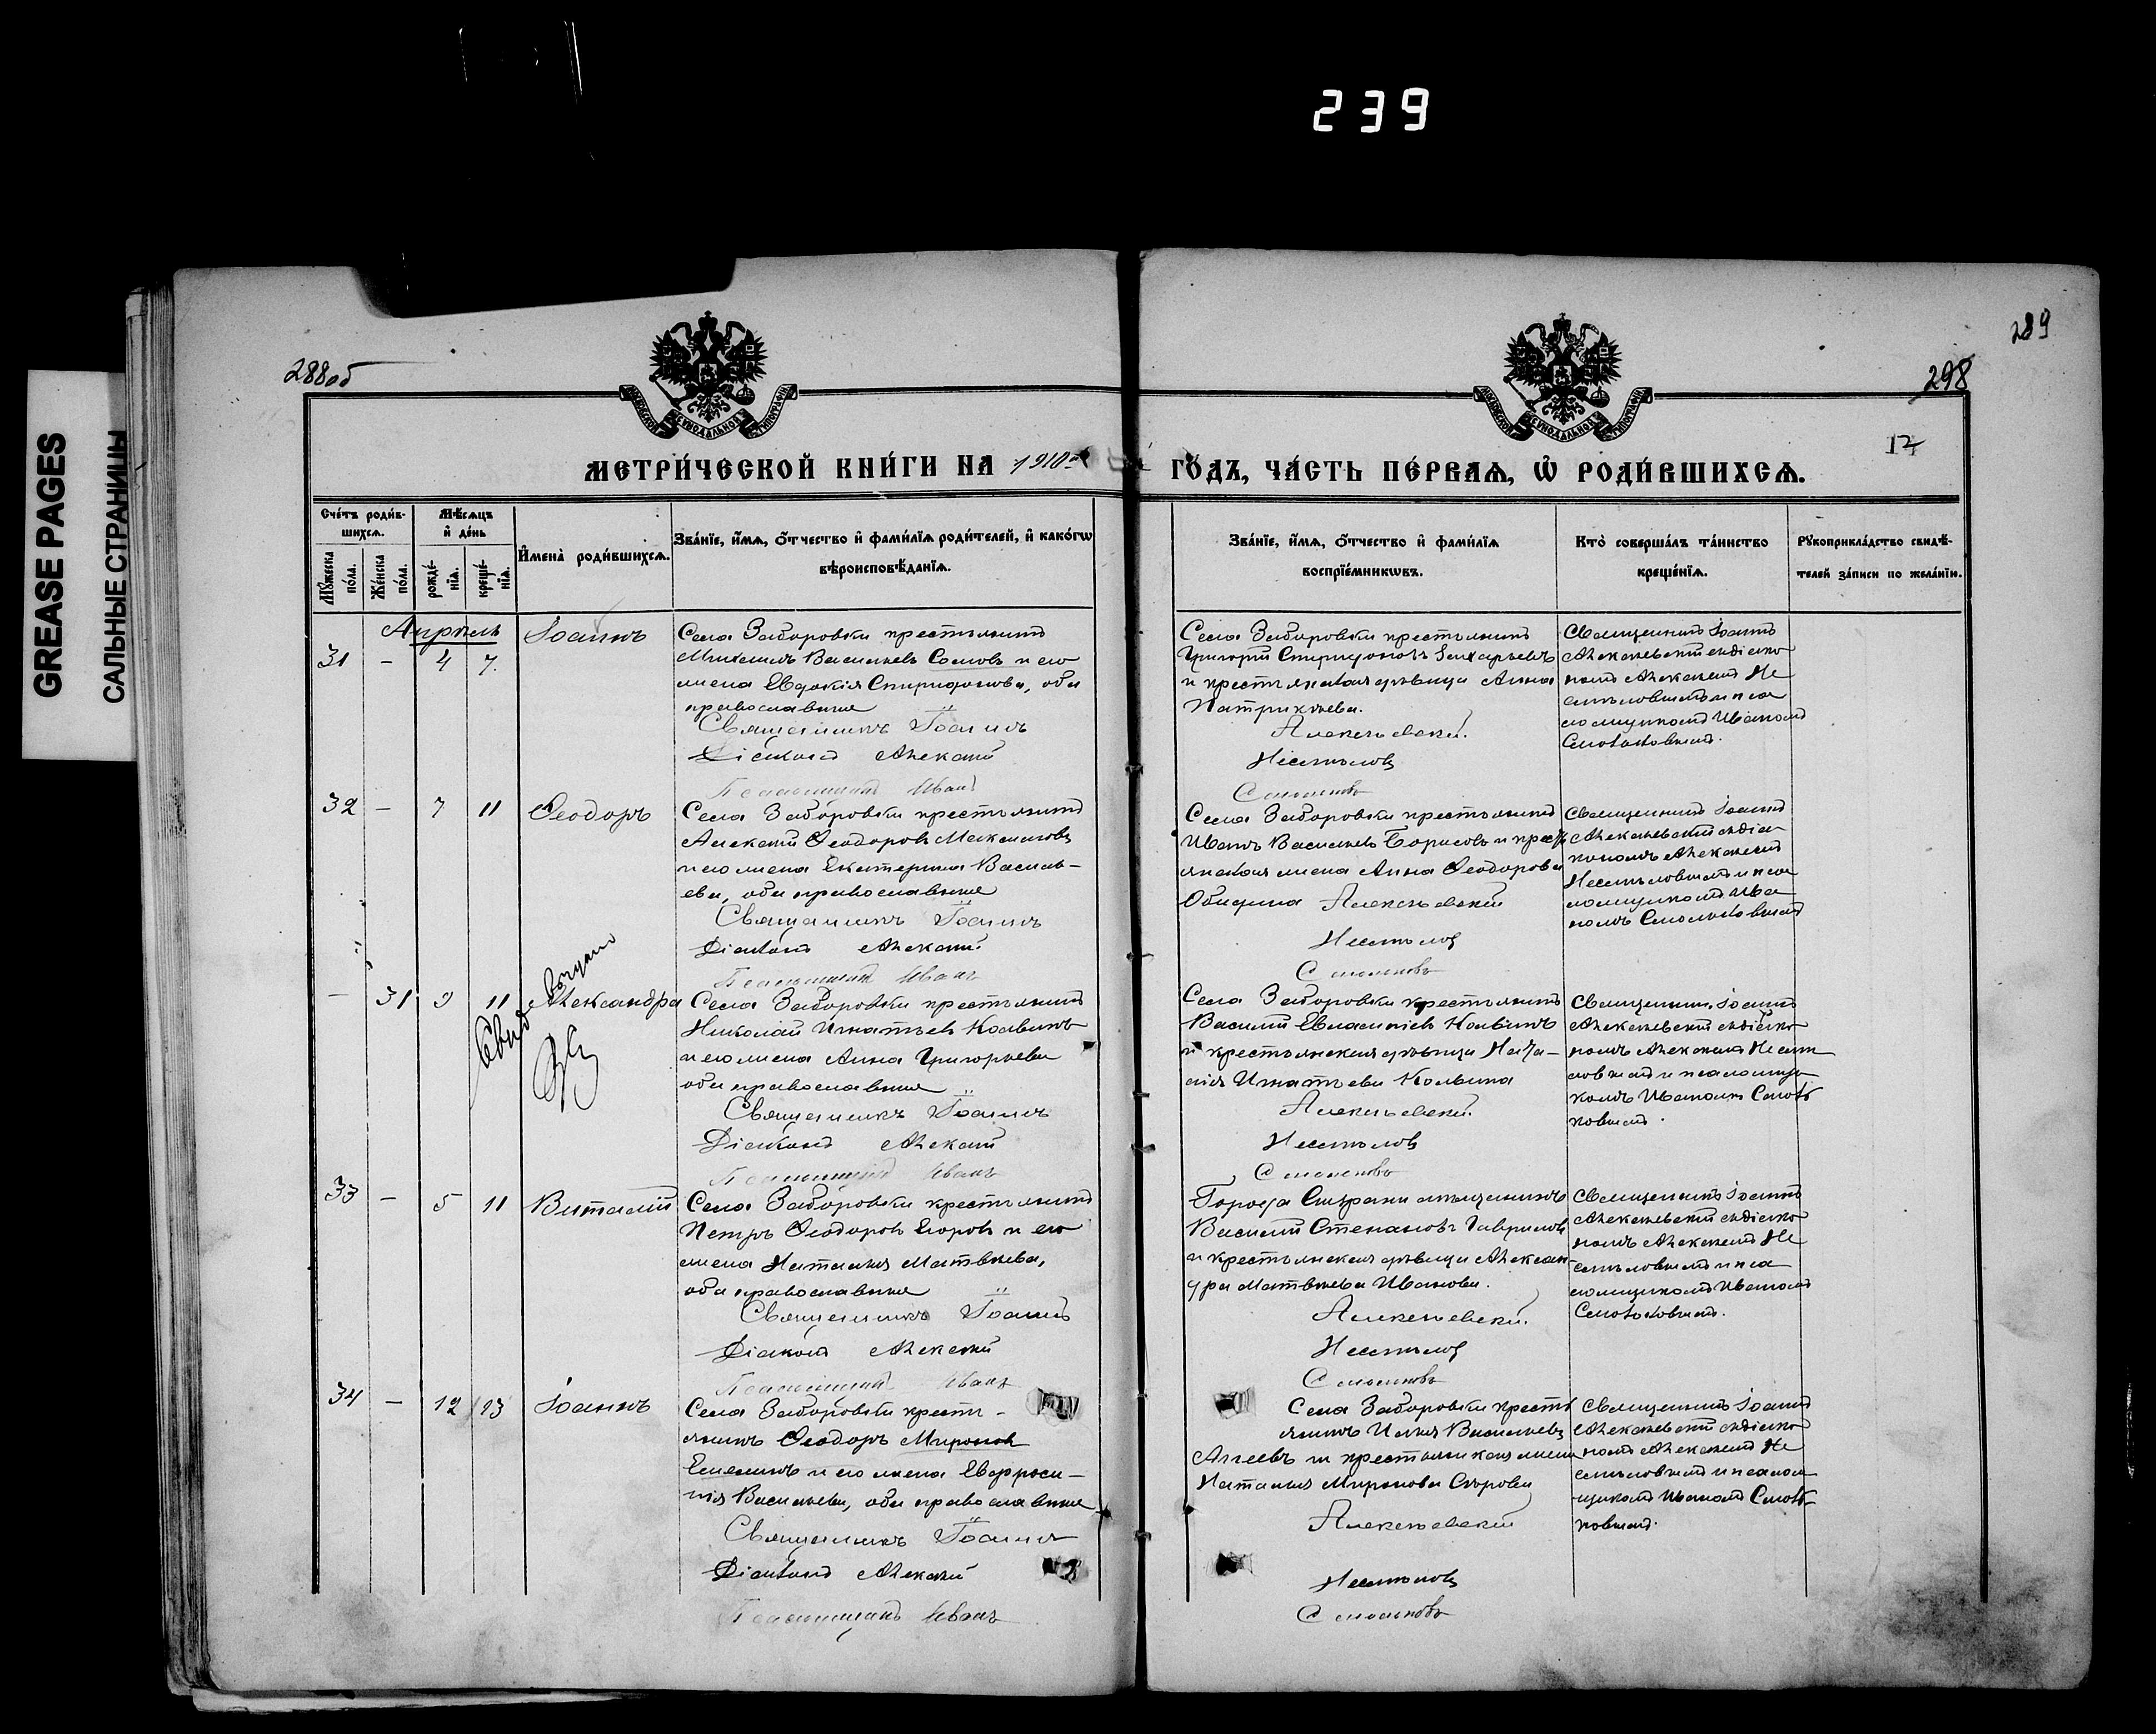 239
GREASE PAGES
САЛЬНЫЕ СТРАНИЦЫ
288об
289
298
17
МЕТРИ́ЧЕСКОЙ КНИ́ГИ НА 1910й
ГО́ДЪ, ЧА́СТЬ ПЕ́РВАѦ, Ѡ РОДИ́ВШИХСѦ.
Сче́тъ роди́в-
шихсѧ.
Мꙋ́жеска по́ла.
Же́нска по́ла.
Мѣ́сѧцъ
и҆ де́нь
рожде́-
нїѧ.
креще́-
нїѧ.
И҆мена̀ роди́вшихсѧ.
Зва́нїе, и҆́мѧ, ѻ҆́тчество и҆ фами́лїѧ роди́телей, и҆ како́гѡ
вѣроисповѣ́данїѧ.
Зва́нїе, и҆́мѧ, ѻ҆́тчество и҆ фами́лїѧ
воспрїе́мникѡвъ.
Кто̀ соверша́лъ та́инство
креще́нїѧ.
Рꙋкоприкла́дство свидѣ́-
телей за́писи по жела́нїю.
Апрѣль
31 - 4 7. Іоаннъ
Села Заборовки крестьянинъ
Михаилъ Васильевъ Сомовъ и его
жена Евдокія Спиридонова, оба
православные
Священникъ Іоаннъ
Діаконъ Алексій
Псаломщикъ Иванъ
Села Заборовки крестьянинъ
Григорій Спиридоновъ Захарьевъ
и крестьянская дѣвица Анна
Патрикѣева.
Алексѣевскій.
Несмѣловъ
Смольковъ
Священникъ Іоаннъ
Алексѣевскій съ діако
номъ Алексіемъ Не
смѣловымъ и пса
ломщикомъ Иваномъ
Смольковымъ.
32 - 7 11 Ѳеодоръ
Села Заборовки крестьянинъ
Алексій Ѳеодоровъ Максимовъ
и его жена Екатерина Василь-
ева, оба православные
Священникъ Іоаннъ
Діаконъ Алексій.
Псаломщикъ Иванъ
Села Заборовки крестьянинъ
Иванъ Васильевъ Борисовъ и кресть
янская жена Анна Ѳеодорова
Алексѣевскій
Несмѣловъ
Смольковъ
Священникъ Іоаннъ
Алексѣевскій съ діа
кономъ Алексіемъ
Несмѣловымъ и пса
ломщикомъ Ива
номъ Смольковымъ
- 31 9 11 Александра
Села Заборовки крестьянинъ
Николай Игнатьевъ Кольвинъ
и его жена Анна Григорьева
оба православные
Священникъ Іоаннъ
Діаконъ Алексій
Псаломщикъ Иванъ
Села Заборовки крестьянинъ
Василій Евлампіевъ Кольвинъ
и крестьянская дѣвица Ната-
лія Игнатьева Кольвина
Алексѣевскій.
Несмѣловъ
Смольковъ
Священникъ Іоаннъ
Алексѣевскій съ діако
номъ Алексіемъ Несмѣ
ловымъ и псаломщи
комъ Иваномъ Смоль
ковымъ.
33 - 5 11 Виталій
Села Заборовки крестьянинъ
Петръ Ѳеодоровъ Егоровъ и его
жена Наталия Матвѣева,
оба православные
Священникъ Іоаннъ
Діаконъ Алексій
Псаломщикъ Иванъ
Города Сызрани мѣщанинъ
Василій Степановъ Гавриловъ
и крестьянская дѣвица Алексан
дра Матвѣева Иванова.
Алексѣевскій.
Несмѣловъ
Смольковъ
Священникъ Іоаннъ
Алексѣевскій съ діако
номъ Алексіемъ Не
смѣловымъ и пса
ломщикомъ Иваномъ
Смольковымъ.
34 - 12 13 Іоаннъ
Села Заборовки кресть-
янинъ Ѳеодоръ Мироновъ
Емелинъ и его жена Евфроси-
нія Васильева, оба православные
Священникъ Іоаннъ
Діаконъ Алексій
Псаломщикъ Иванъ
Села Заборовки кресть
янинъ Илья Васильевъ
Агеевъ и крестьянская жена
Наталия Миронова Сѣрова
Алексѣевскій
Несмѣловъ
Смольковъ
Священникъ Іоаннъ
Алексѣевскій съ діако
номъ Алексіемъ Не
смѣловымъ и псалом
щикомъ Иваномъ Смоль
ковымъ.